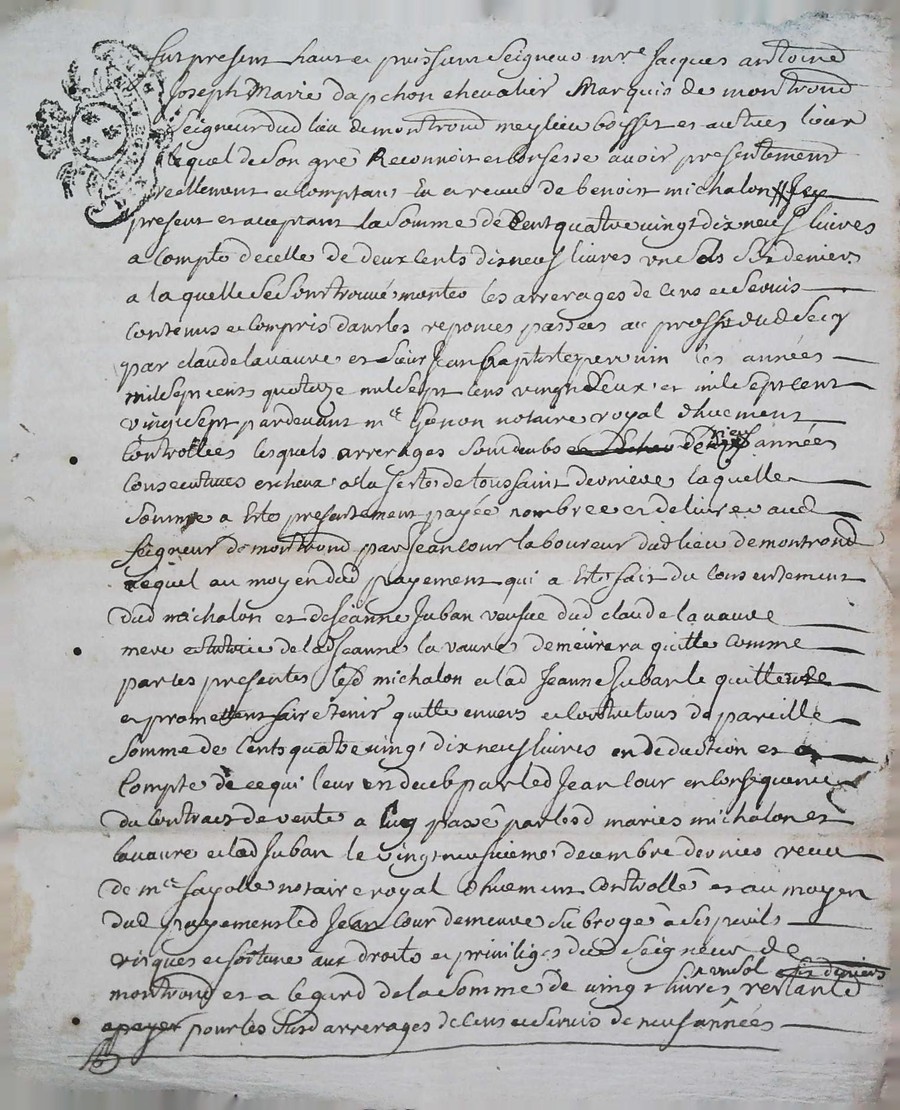 Fut present haut et puissant Seigneur mre Jacques antoine
Joseph Marie dapchon chevalier Marquis de montrond
Seigneur dud lieu de montrond meylieu boisset et autres lieux
lequel de son gré Reconnoit et confesse avoir presentement
reellement et comptant Eu et receu de benoist michalon
present et acceptant la somme de Cent quatre vingt dix neuf livres
a compte de celle de deux cents dix neuf livres un sols six deniers
a laquelle se sont trouvé monter les arrerages de cens et servis
contenus et compris dans les reponces passées au proffit dud Seigr
par claude lavaure et sieur Jean baptiste perrin les années
mil sept cents quatorze mil sept cens vingt deux et mil sept cent
vingt sept pardevant me Genon notaire royal duement
Controllées lesquels arrerages sont deubs de neuf années
Consecutives echeux a la feste de toussaint derniere laquelle
somme a Esté presentement payée nombrée et delivrée aud
seigneur de montrond par Jean cour laboureur dud lieu de montrond
lequel au moyen dud payement qui a Esté fait du consentement
dud michalon et de Jeanne Juban veufve dud claude lavaure
mere et tutrice de lad Jeanne lavaure demeurera quitte comme
par les presentes led michalon et lad Jeanne Juban le quittent
et promettent faire tenir quitte envers et contre tous de pareille
somme de Cents quatre vingt dix neuf livres en deduction et a
Compte de ce qui leur en deub par led Jean Cour en consequence
du Contract de vente a luy passé par lesd maries michalon et
lavaure et lad Juban le vingt neufvieme decembre dernier receu
de me notaire royal duement Controllé et au moyen
dud payement led Jean Cour demeure subrogé à ses perils
risques et fortune aux droits et privileges dud Seigneur de
montrond et a legard de la somme de vingt livres un sol six deniers restante
a payer pour les susd arrerages de cens et servis de neuf années